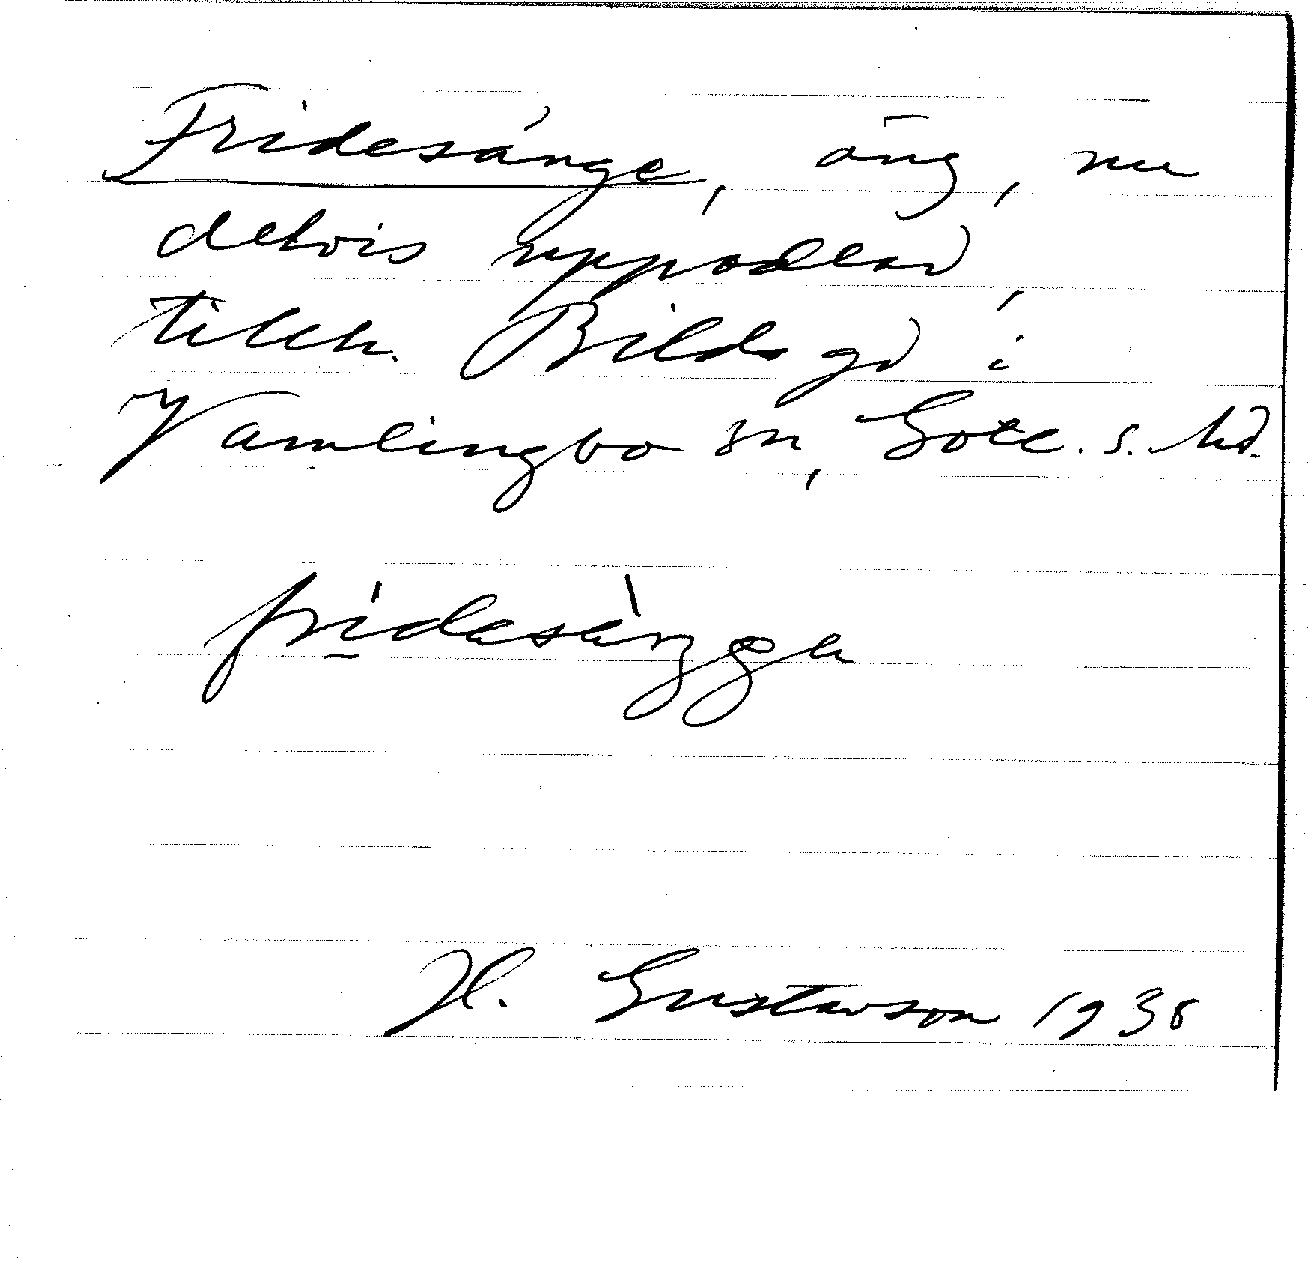 Fridesänge, äng, nu
delvis uppodlad,
tillh. Bilds gd i
Vamlingbo sn, Gotl. s. hd.
H. Gustavson 1938